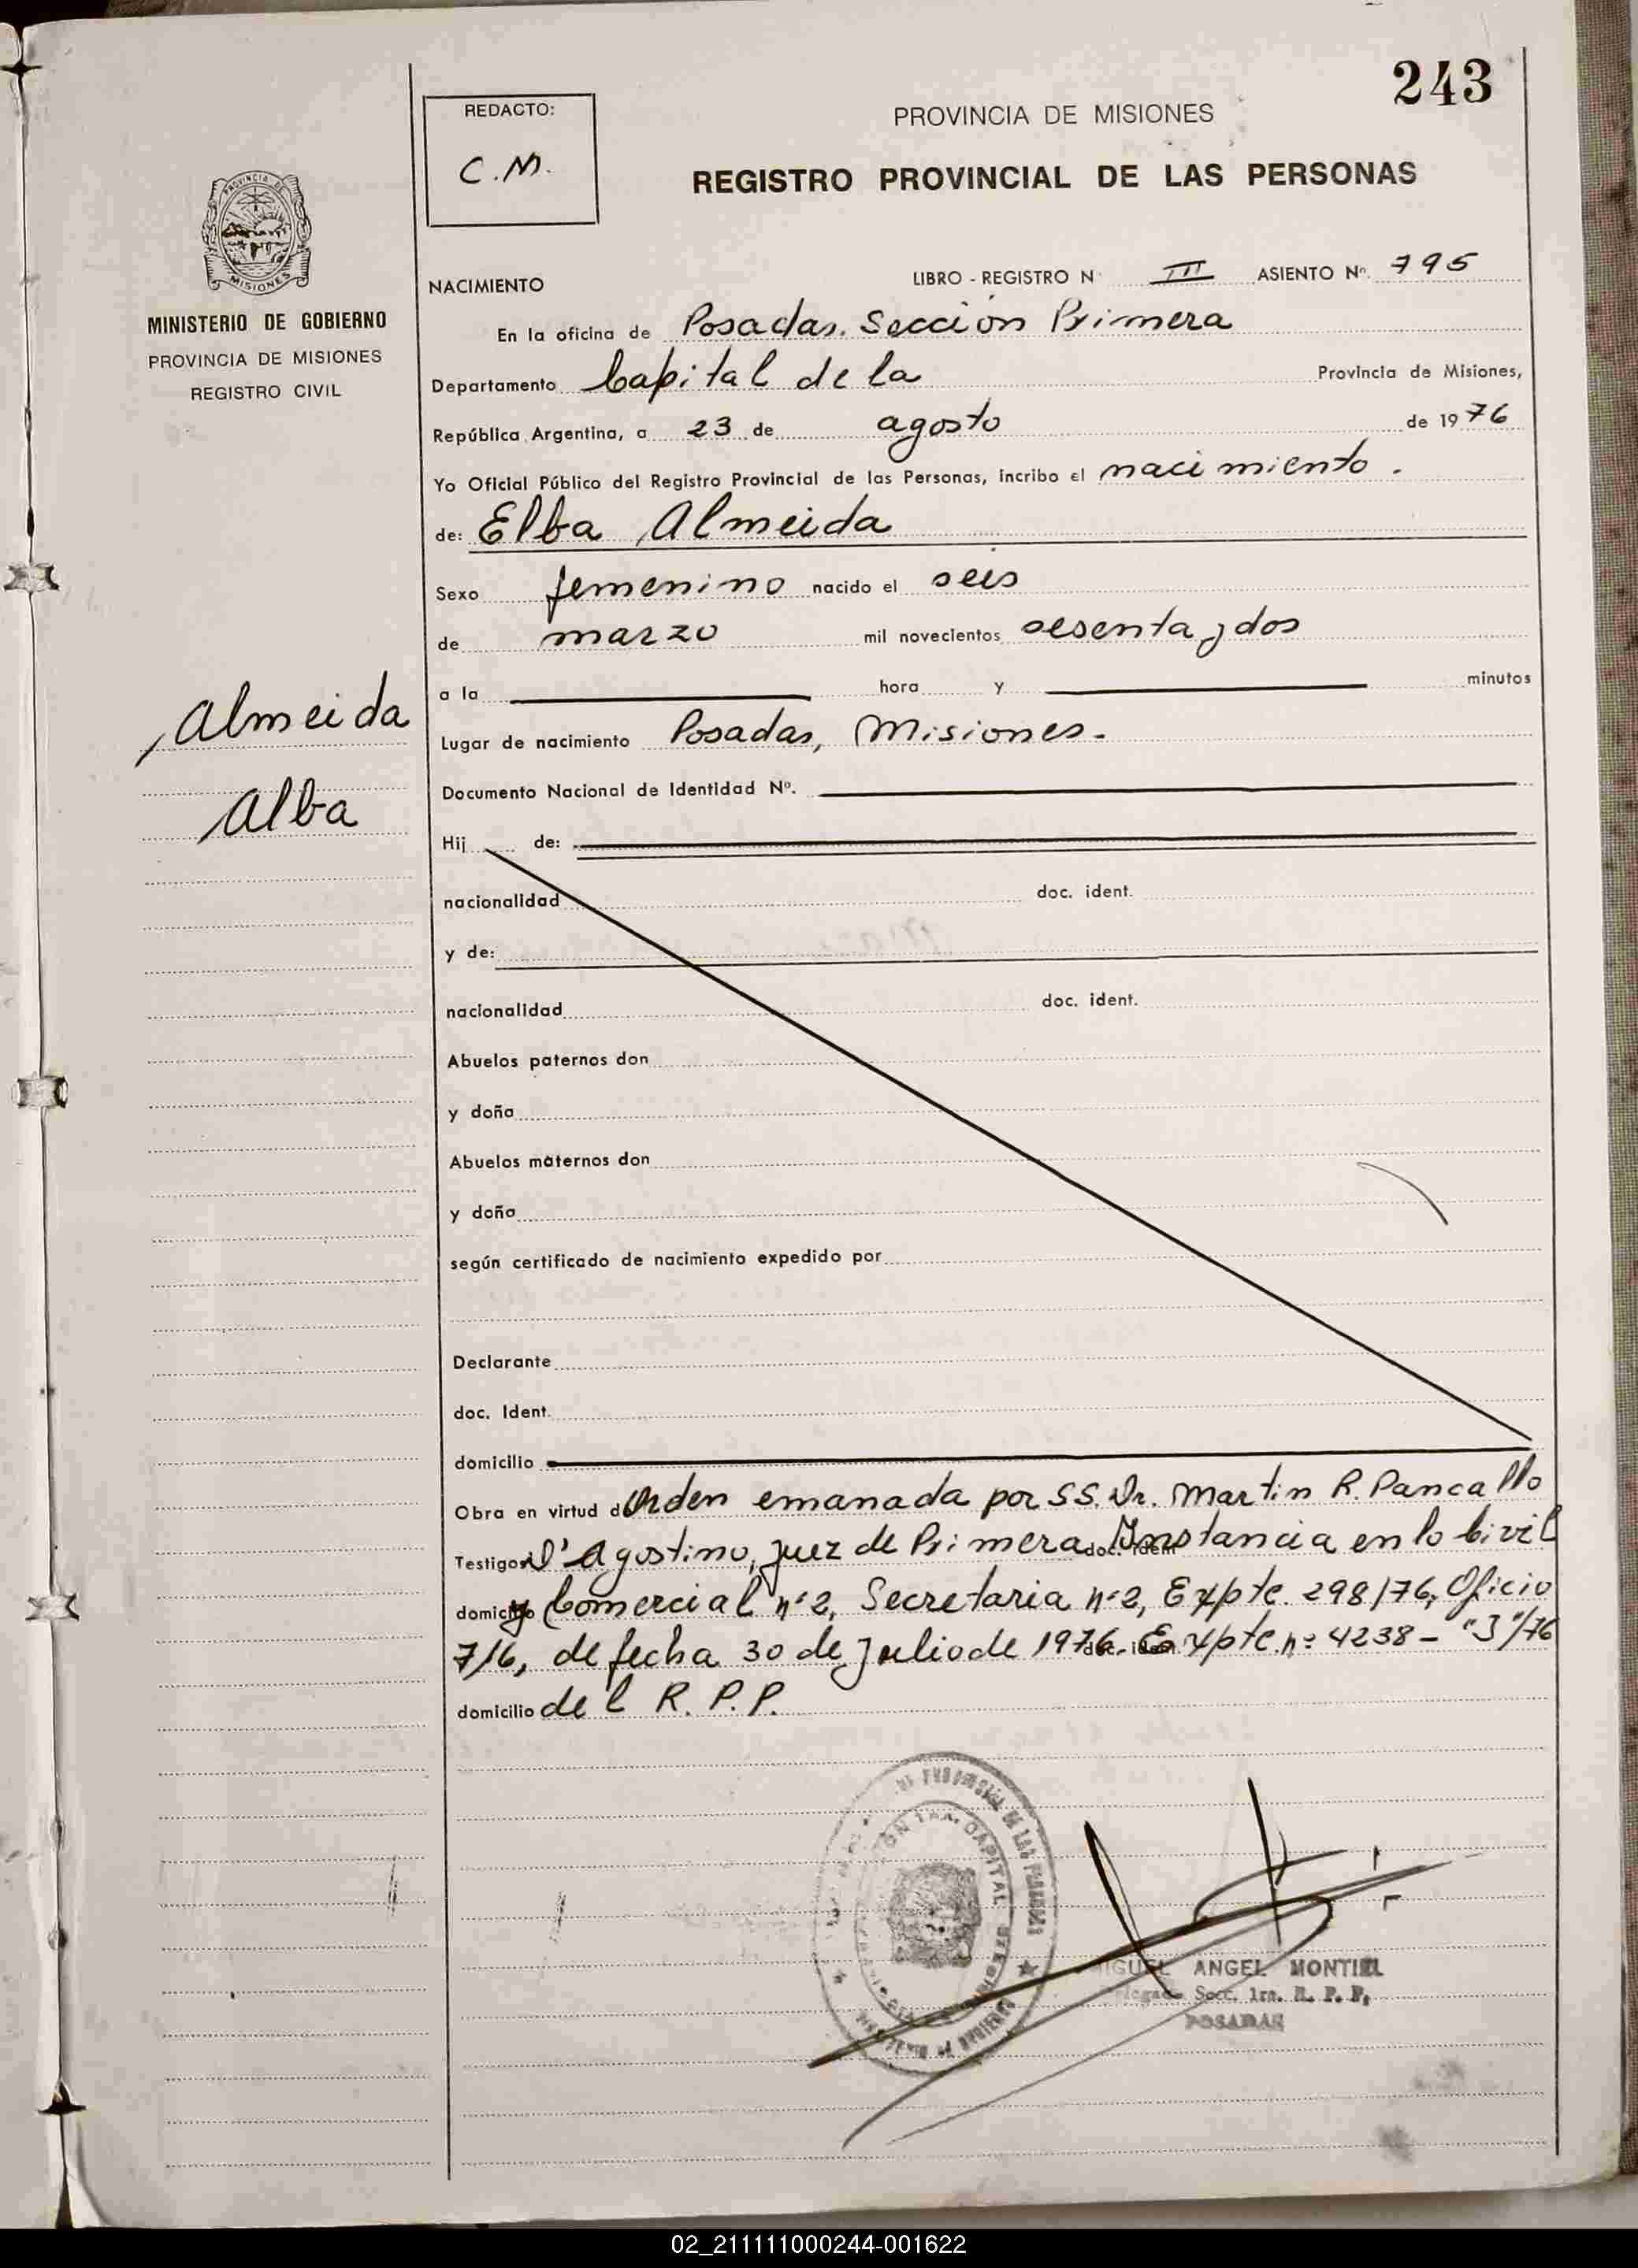 243
REDACTO:
C.M.
PROVINCIA DE MISIONES
REGISTRO PROVINCIAL DE LAS PERSONAS
MISIONES
MINISTERIO DE GOBIERNO
PROVINCIA DE MISIONES
REGISTRO CIVIL
NACIMIENTO LIBRO - REGISTRO N III ASIENTO Nº. 795
En la oficina de Posadas. Sección Primera
Departamento Capital de la Provincia de Misiones,
República Argentina, a 23 de agosto de 1976
Yo Oficial Público del Registro Provincial de las Personas, incribo el nacimiento.
de: Elba Almeida
Sexo femenino nacido el seis
de marzo mil novecientos sesenta y dos
a la hora y minutos
Almeida
Alba
Lugar de nacimiento Posadas, Misiones.
Documento Nacional de Identidad Nº.
Hij de:
nacionalidad doc. ident.
y de:
nacionalidad doc. ident.
Abuelos paternos don
y doña
Abuelos maternos don
y doña
según certificado de nacimiento expedido por
Declarante
doc. Ident.
domicilio
Obra en virtud d Orden emanada por S.S. Dr. Martin R. Pancallo
Testigos D'Agostino, juez de Primera Instancia en lo Civil
domic y Comercial nº 2, Secretaria nº 2, Expte. 298/76, Oficio
716, de fecha 30 de Julio de 1976. Expte. nº 4238 - "J"/76
domicilio del R. P. P.
CAPITAL
ANGEL MONTIEL
Secc. 1ra. R. P. P.
POSADAS
02_211111000244-001622